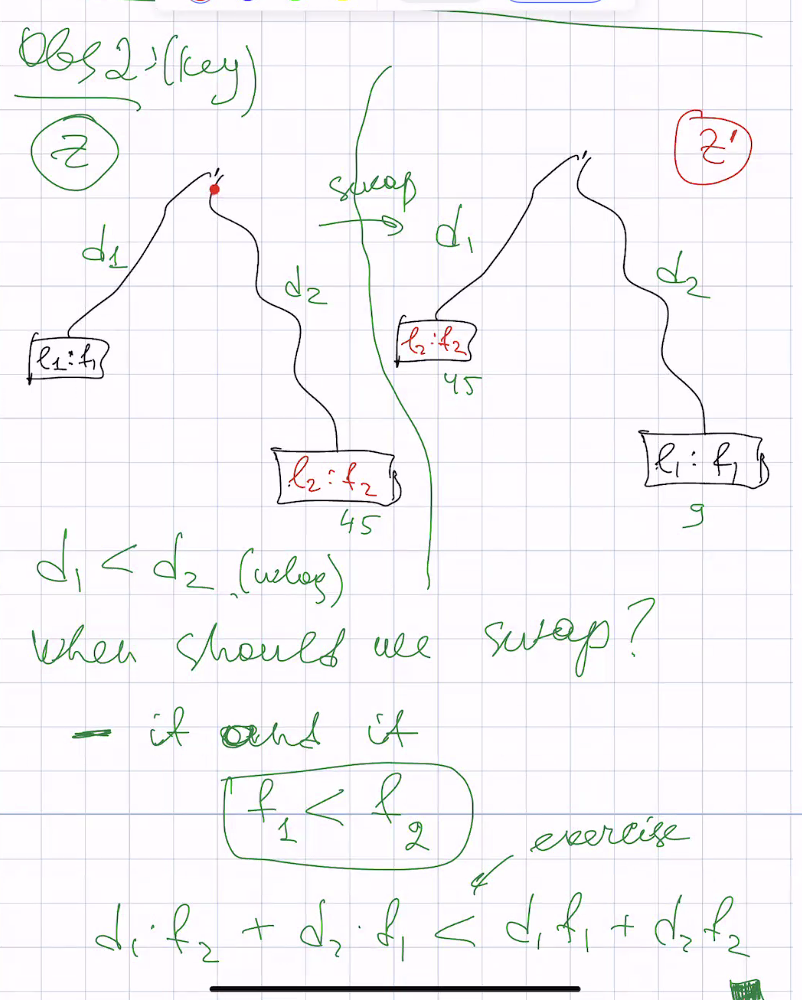 Obs 2: (key)
Z
Z'
swap
d1
d2
d1
d2
l1:f1
l2:f2
45
l2:f2
45
l1:f1
9
d1 < d2 (wlog)
when should we swap?
- if and if
f1 < f2
exercise
d1·f2 + d2·f1 < d1f1 + d2f2